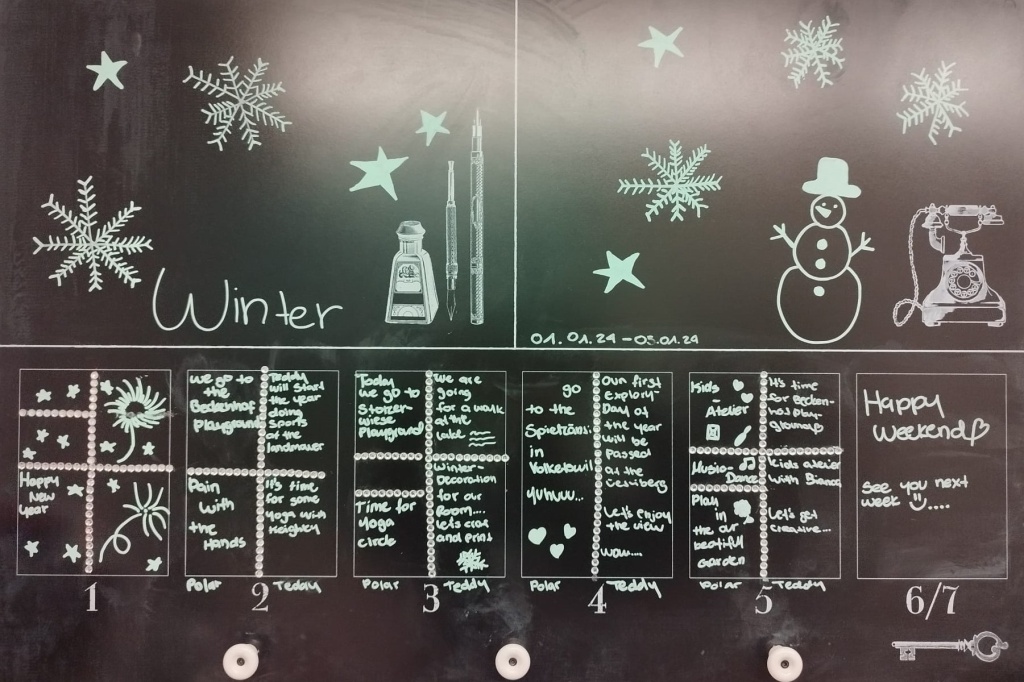 Winter
01.01.24 - 05.01.24
Happy
New
Year
1
We go to
the
Beckenhof
Playground
Teddy
will start
the year
doing
sports
at the
Landmauer
Pain
with
the
Hands
It's time
for some
Yoga with
Keighley
Polar
Teddy
2
Today
we go to
Stolzer-
wiese
Playground
We are
going
for a walk
at the
lake
Time for
Yoga
circle
Winter-
Decoration
for our
Room....
Let's
and print
Polar
Teddy
3
go
to the
in
Volketswil
Yuhuuu...
Our first
explory-
Day of
the year
will be
Passed
at the
Let's enjoy
the view
wow....
Polar
Teddy
4
Kids
Atelier
Music-
Dance
Play
in
the our
beatiful
Garden
It's time
for Becken-
hof play-
Kids atelier
with Bianca
Let's get
creative...
Polar
Teddy
5
Happy
Weekend
See you next
week ☺....
6/7